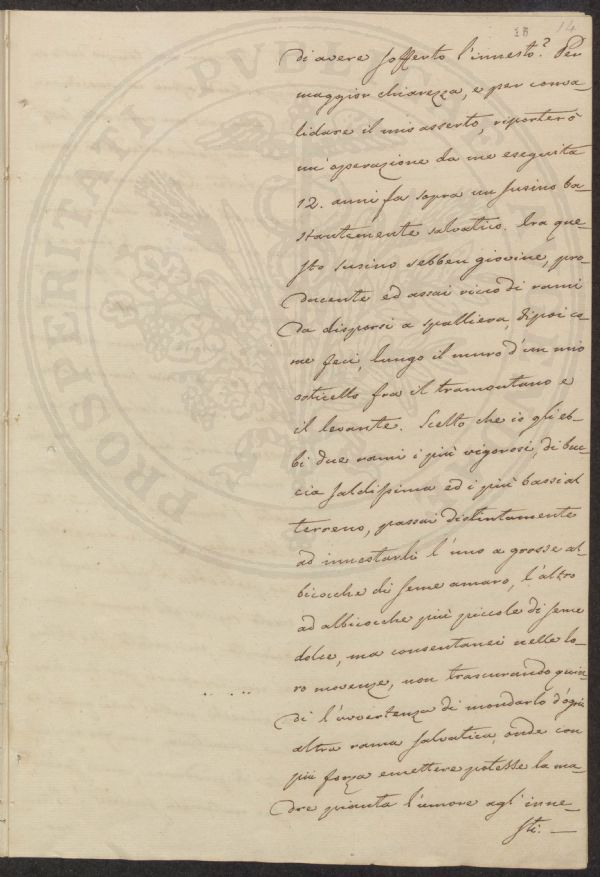 14
di avere sofferto l'innesto? Per
maggior chiarezza, e per conva-
lidare il mio asserto, riporterò
un'operazione da me eseguita
12. anni fa sopra un susino ba-
stantemente salvatico. Era que-
sto susino sebben giovine, pro-
ducente ed assai ricco di rami
da disporsi a spalliera, dipoi co
me feci, lungo il muro d'un mio
orticello fra il tramontano e
il levante. Scelto che io gli eb-
bi due rami i più vigorosi, di buc
cia saldissima ed i più bassi al
terreno, passai distintamente
ad innestarli l'uno a grosse al-
bicocche di seme amaro, l'altro
ad albicocche più piccole di seme
dolce, ma consentanei nelle lo-
ro movenze, non trascurando quin-
di l'avvertenza di mondarlo d'ogni
altra rama salvatica, onde con
più forza emettere potesse la ma-
dre pianta l'umore agl'inne-
sti. —
PROSPERITATI PUBLICAE